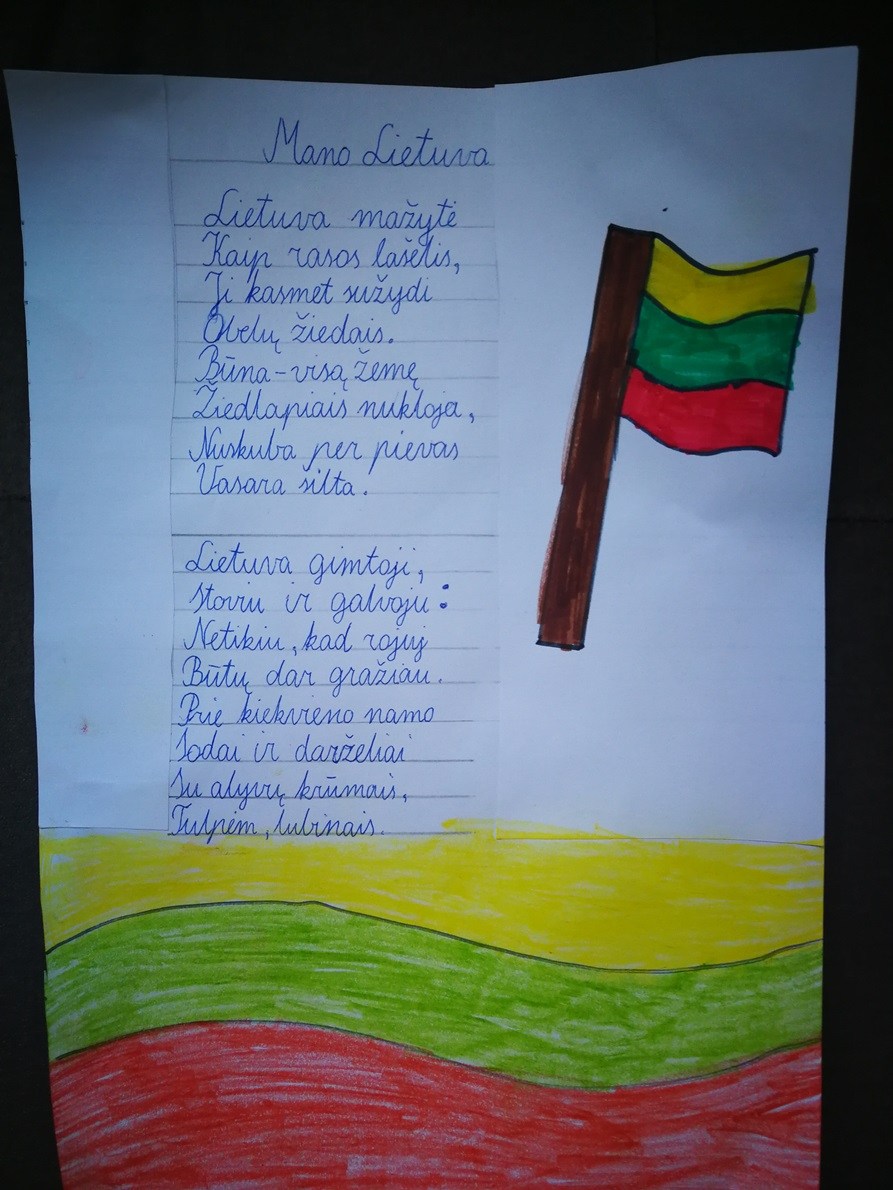 Mano Lietuva
Lietuva mažytė
Kaip rasos lašelis,
Ji kasmet sužydi
Obelų žiedais.
Būna-visą žemę
Žiedlapiais nukloja,
Nuskuba per pievas
Vasara šilta.
Lietuva gimtoji,
Stoviu ir galvoju:
Netikiu, kad rojuj
Būtų dar gražiau.
Prie kiekvieno namo
Sodai ir darželiai
Su alyvų krūmais,
Tulpėm, lubinais.